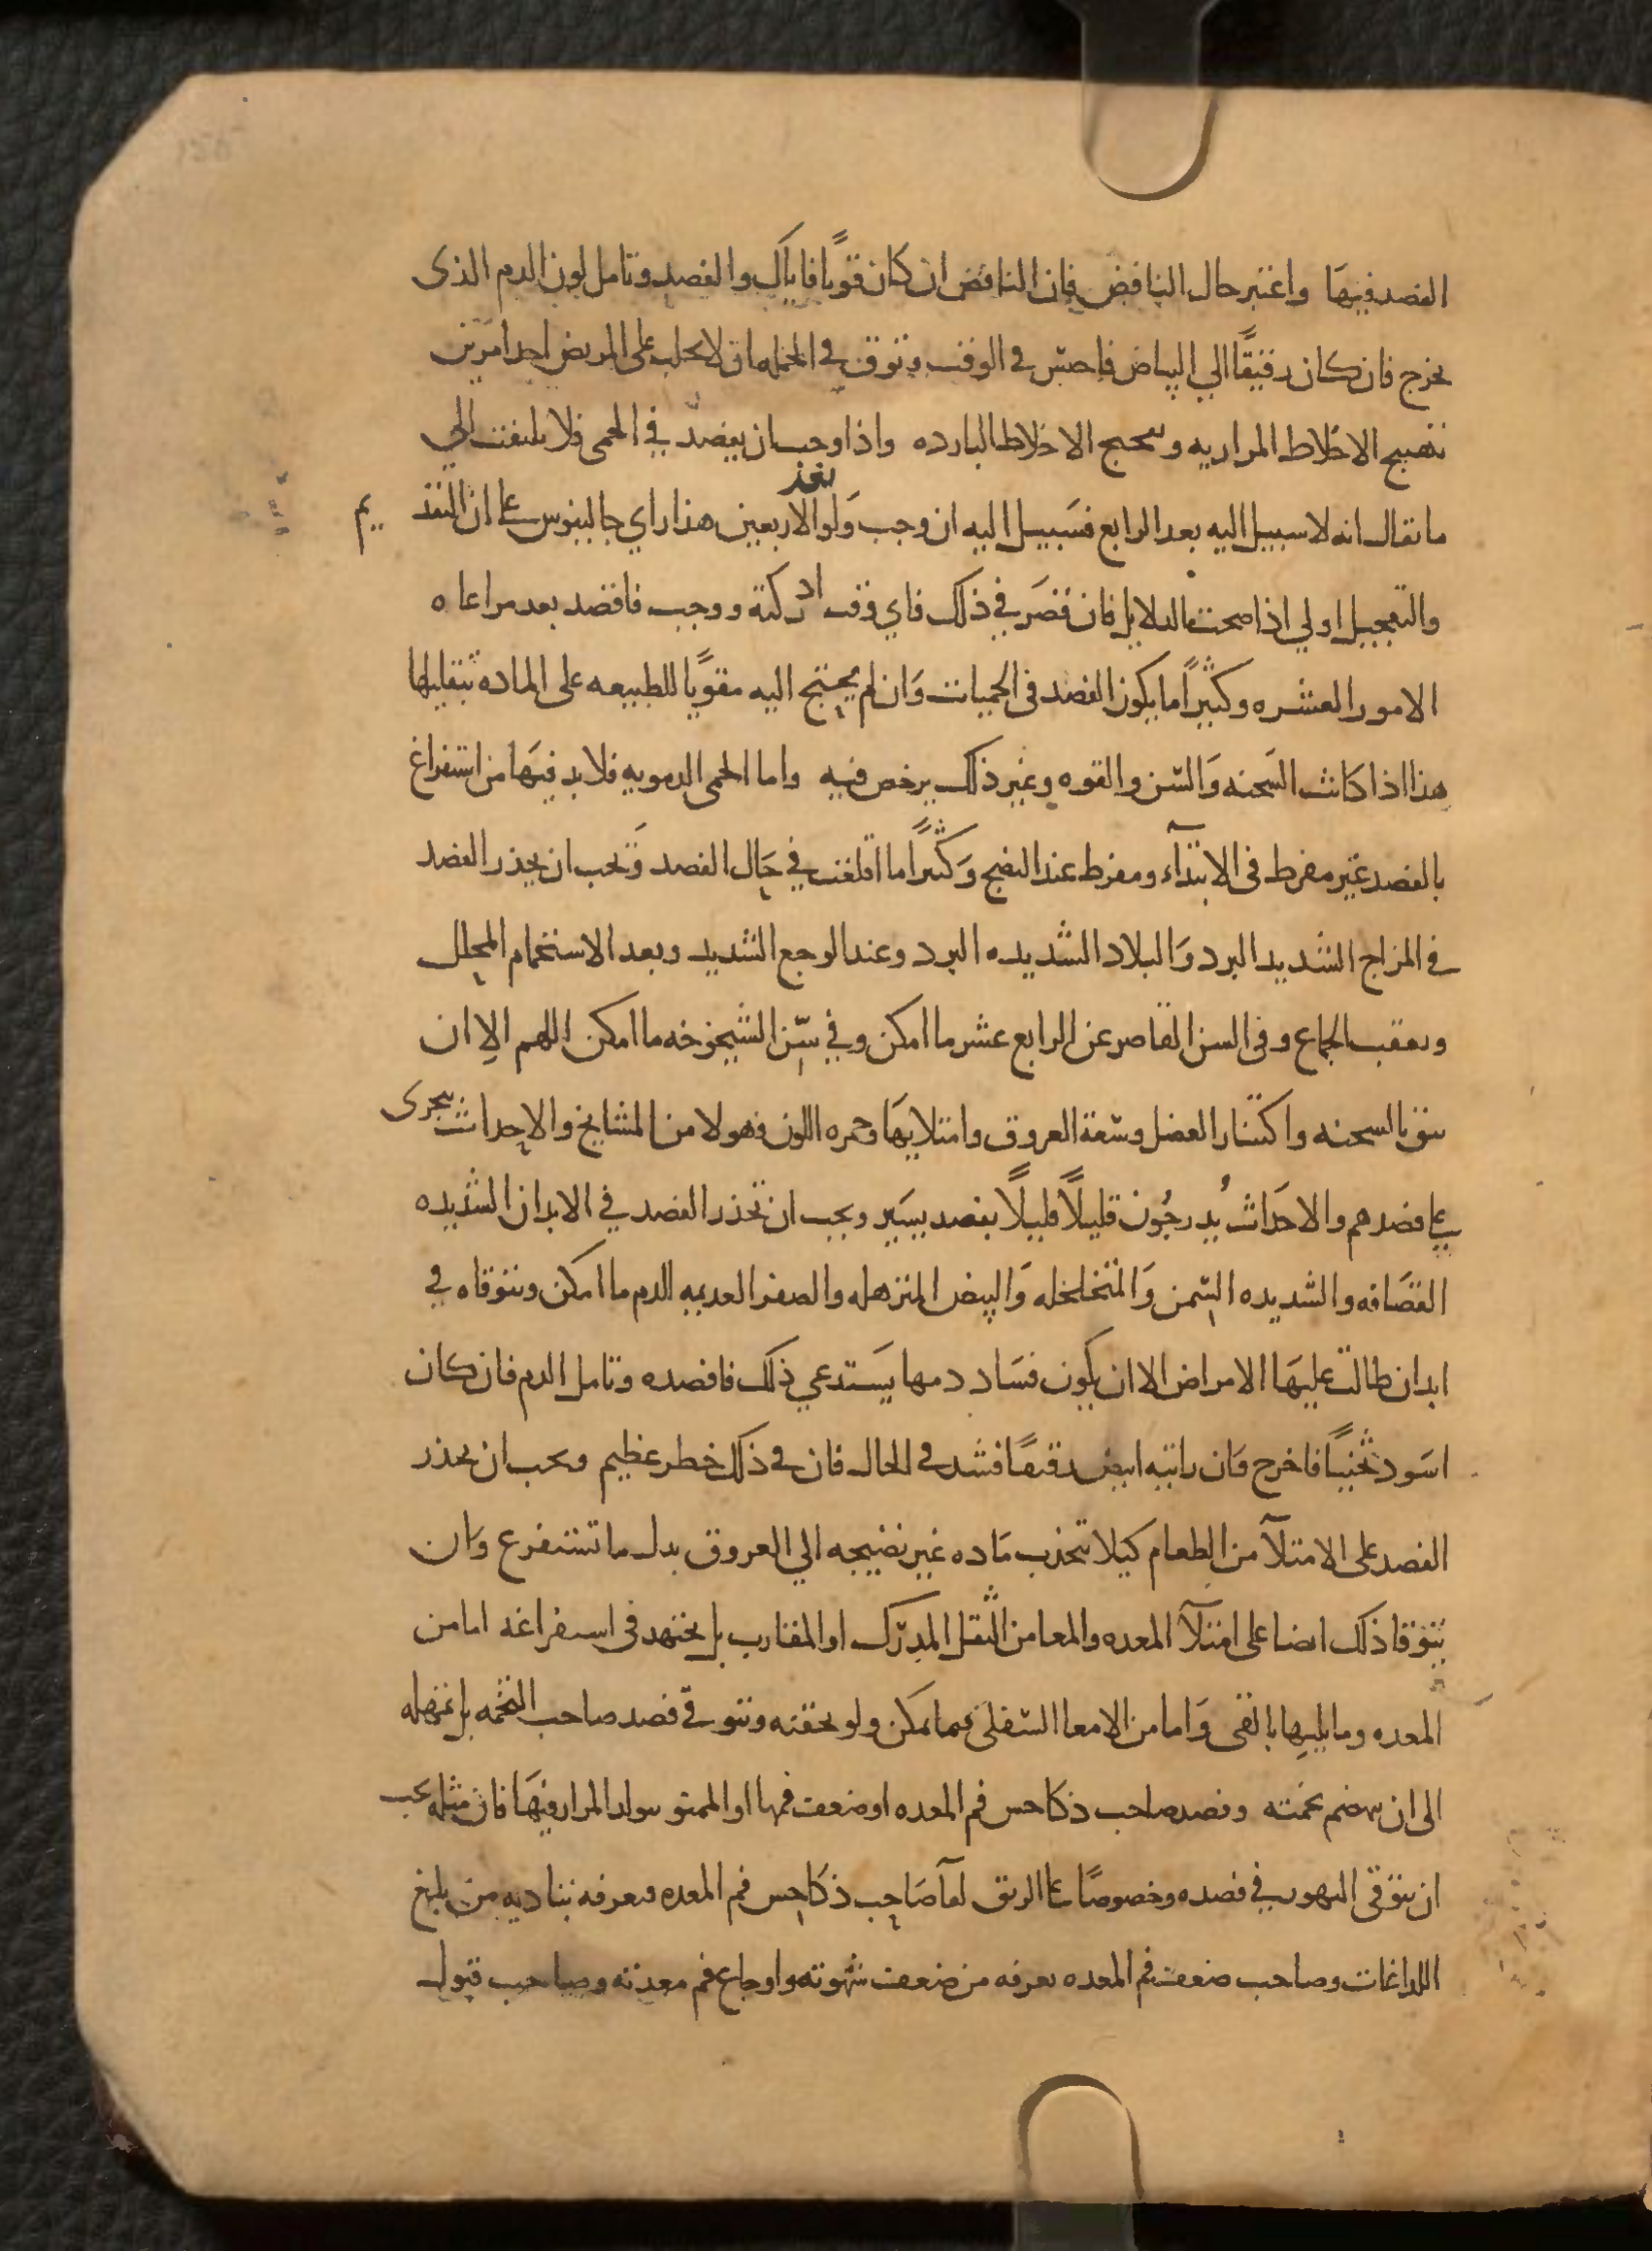 الفصد فيها واعتبر حال النافض فان النافض ان كان قويا فاياك والفصد وتامل لون الدم الذى
يخرج فان كان رقيقًا الي البياض فاحبس في الوقت وتوق في الجمله ان لا تجلب على المريض احد امرين
تهييج الاخلاط المراريه وتفجيج الاخلاط البارده واذا وجب ان يفصد في الحمى فلا يلتفت الي
ما يقال انه لا سبيل اليه بعد الرابع فسَبيل اليه ان وجب وَلو بعد الاربعين هذا راي جالينوس على ان التقديم
والتعجيل اولي اذا صحت الدلايل فان قصَر في ذلك فاي وقت ادركته ووجب فافصد بعد مراعاه
الامور العشره وكثيرًا ما يكون الفصد فى الحميات وَان لم يحتج اليه مقويًا للطبيعه على الماده بتقليلها
هذا اذا كانت السَحنه وَالسّن والقوه وغير ذلك يرخص فيه واما الحمى الدمويه فلا بد فيهَا من استفراغ
بالفصد غير مفرط فى الابتدآء ومفرط عند النضج وَكثيرًا ما اقلعت في حَال الفصد وَيجب ان يحذر الفصد
في المزاج الشديد البرد وَالبلاد الشديده البرد وعند الوجع الشديد وبعد الاستحمام المحلل
وبعقب الجماع وفى السن القاصر عن الرابع عشر ما امكن وفي سّن الشيخوخه ما امكن اللهم الا ان
يتق بالسحنه واكتناز العضل وسّعة العروق وامتلايهَا وحمره اللون فهولا من المشايخ والاحداث يتجرى
علي فصدهم والاحدَاث يُدرجُون قليلًا قليلًا بفصد يسَير ويجب ان تحذر الفصد في الابدان الشديده
القضَافه والشديده السّمن وَالمتخلخله وَالبيض المترهله والصفر العديمه الدم ما امكن وتتوقاه في
ابدان طالت عليهَا الامراض الا ان يكون فسَاد دمها يَستدعي ذلك فافصده وتامل الدم فان كان
اسَود ثخينًا فاخرج وَان راتيه ابيض رقيقًا فشد في الحال فان في ذلك خطر عظيم ويجب ان يحذر
الفصد على الامتلآ من الطعام كيلا تنجذب مَاده غير نضيجه الي العروق بدل ما تستفرغ وَان
يتوقا ذلك ايضا على امتلآ المعده والمعا من الثقل المدرّك او المقارب بل يجتهد فى استفراغه اما من
المعده وما يليها بالقى وَاما من الامعا السّفلى فبما يمكن ولو بحقنه وتتوقي فصد صاحب التخمه بل تمهله
الى ان تنهضم تخمته وفصد صاحب ذكا حس فم المعده او ضعف فمها او الممنو بتولد المرار فيهَا فان مثله يجب
ان يتوقى التهور في فصده وخصوصًا على الريق امآ صَاحب ذكا حِس فم المعده فيعرفه بتاديه من بلع
اللداغات وصاحب ضعف فم المعده يعرفه من ضعف شهوته واوجاع فم معدته وصاحب قبول